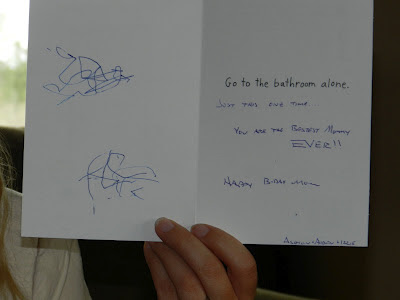 Go to the bathroom alone.
JUST THIS ONE TIME...
YOU ARE THE BESTEST MOMMY
EVER!!
HAPPY BIRTHDAY MOM